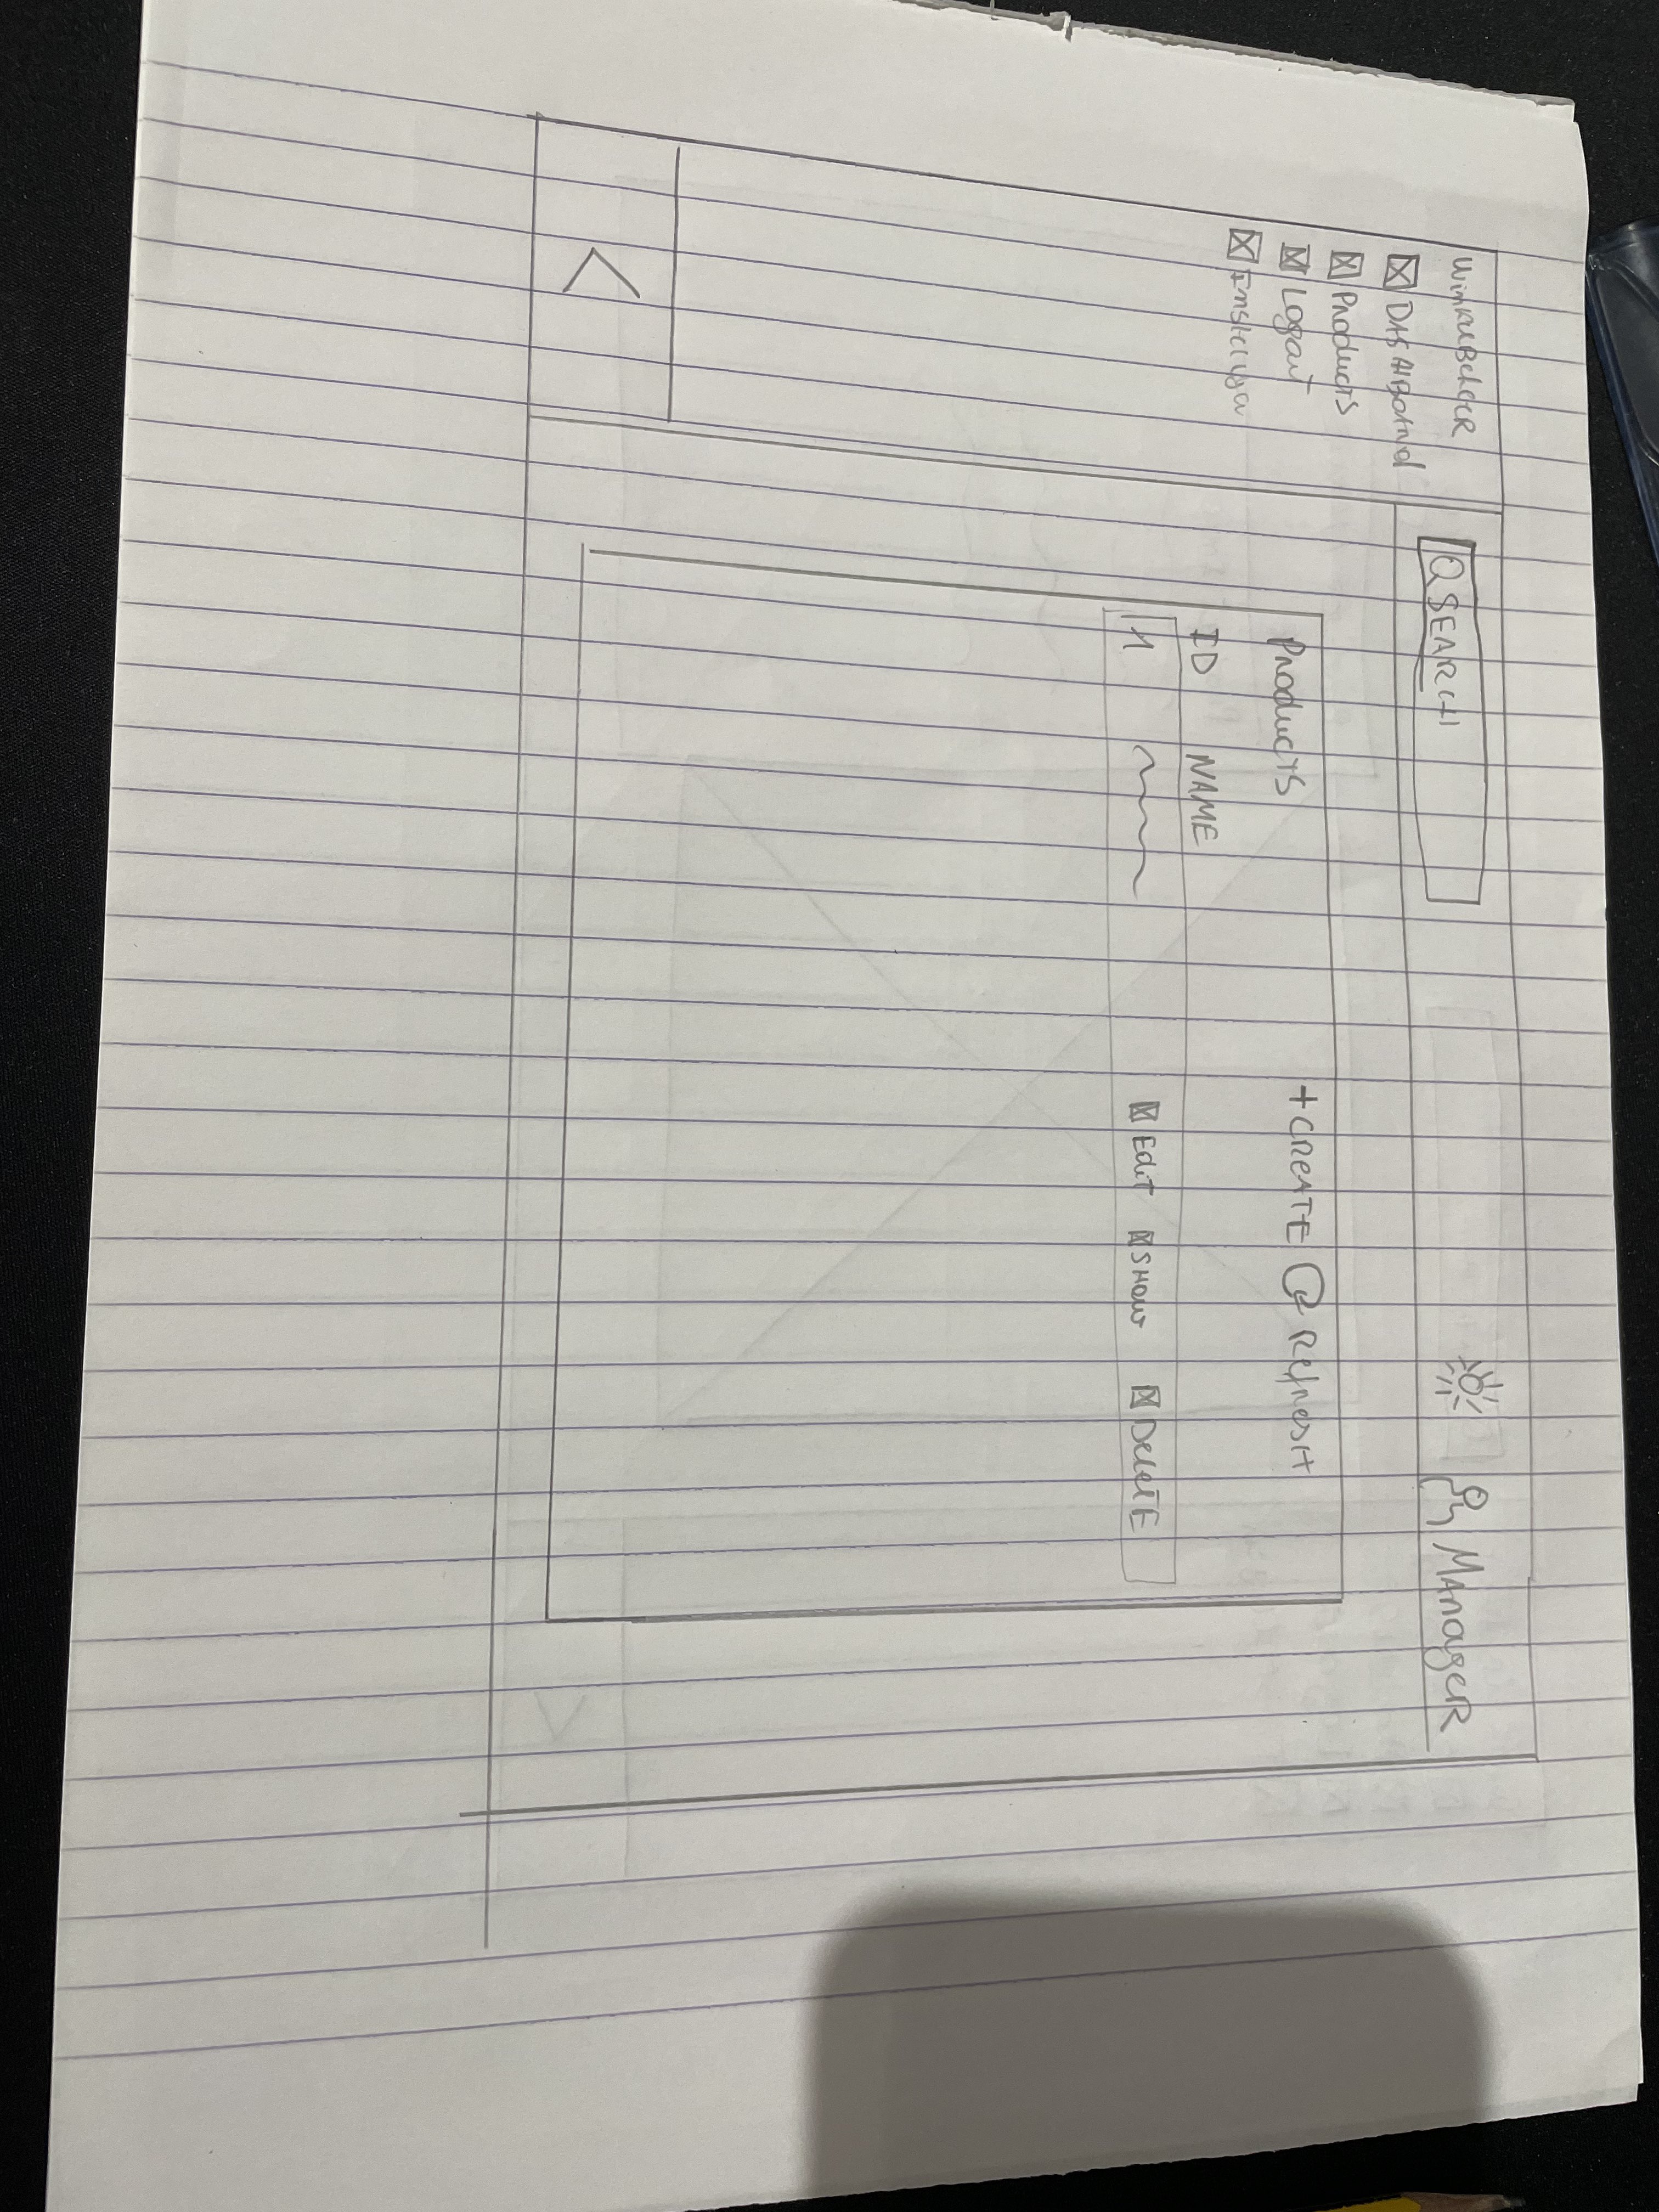 WinkelBeheer
DASHBOARD
Products
Logout
Q SEARCH
Manager
Products
+ CREATE
Refresh
ID NAME
1
Edit
Show
Delete